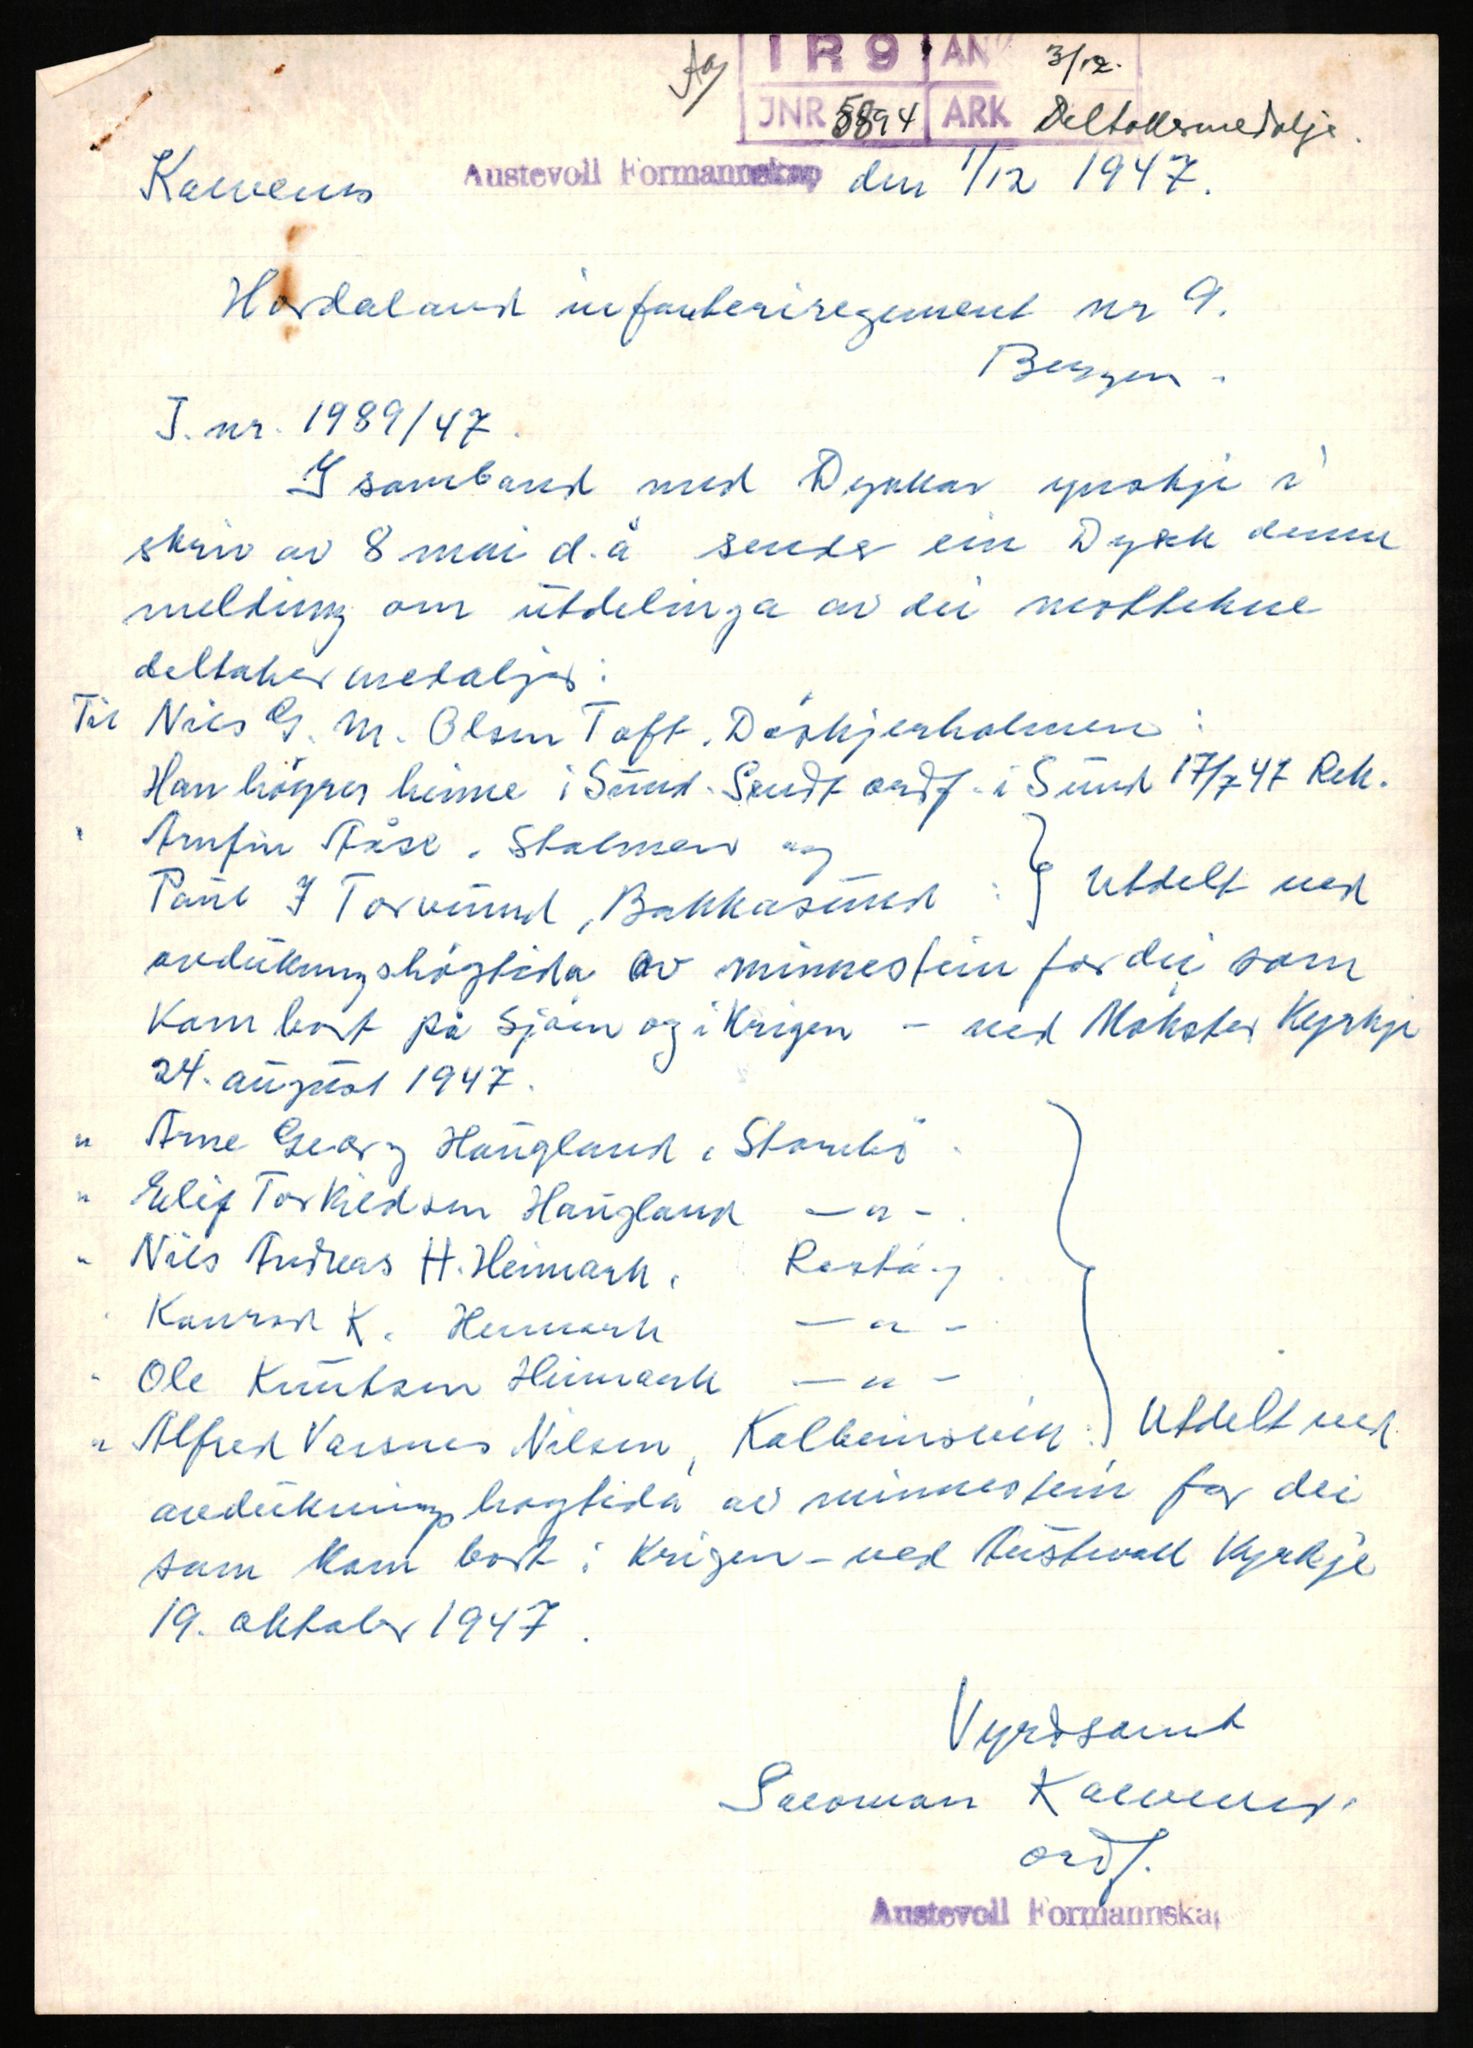 IR9 AN 3/12.
JNR 5894 ARK Deltakermedalje.
Kalvenes Austevoll Formannskap den 1/12 1947.
Hordaland infanteriregiment nr 9.
Bergen.
J. nr. 1989/47.
I samband med Dykkar ynskje i
skriv av 8 mai d.å sender ein Dykk denne
melding om utdelinga av dei mottekne
deltakermedaljer:
Til Nils G. M. Olsen Toft, Døskjerholmen:
Han høyrer heime i Sund. Sendt ordf. i Sund 17/7 47 Rek.
" Arnfin Våse, Stolmen og
Paul J Torvund, Bakkasund : } Utdelt ved
avdukingshögtida av minnestein for dei som
kom bort på Sjöen og i Krigen - ved Mökster Kyrkje
24. august 1947.
" Arne Georg Haugland, Storebö.
" Eilif Torkildsen Haugland —"—.
" Nils Andreas H. Heimark, Rostöy
" Konrad K. Heimark —"—
" Ole Knutsen Heimark —"—
" Alfred Varsnes Nilsen, Kolbeinsvik :} Utdelt ved
avdukingshögtida av minnestein for dei
som kom bort i Krigen - ved Austevoll Kyrkje
19. oktober 1947.
Vyrdsamt
Salomon Kalvenes.
ordf.
Austevoll Formannskap